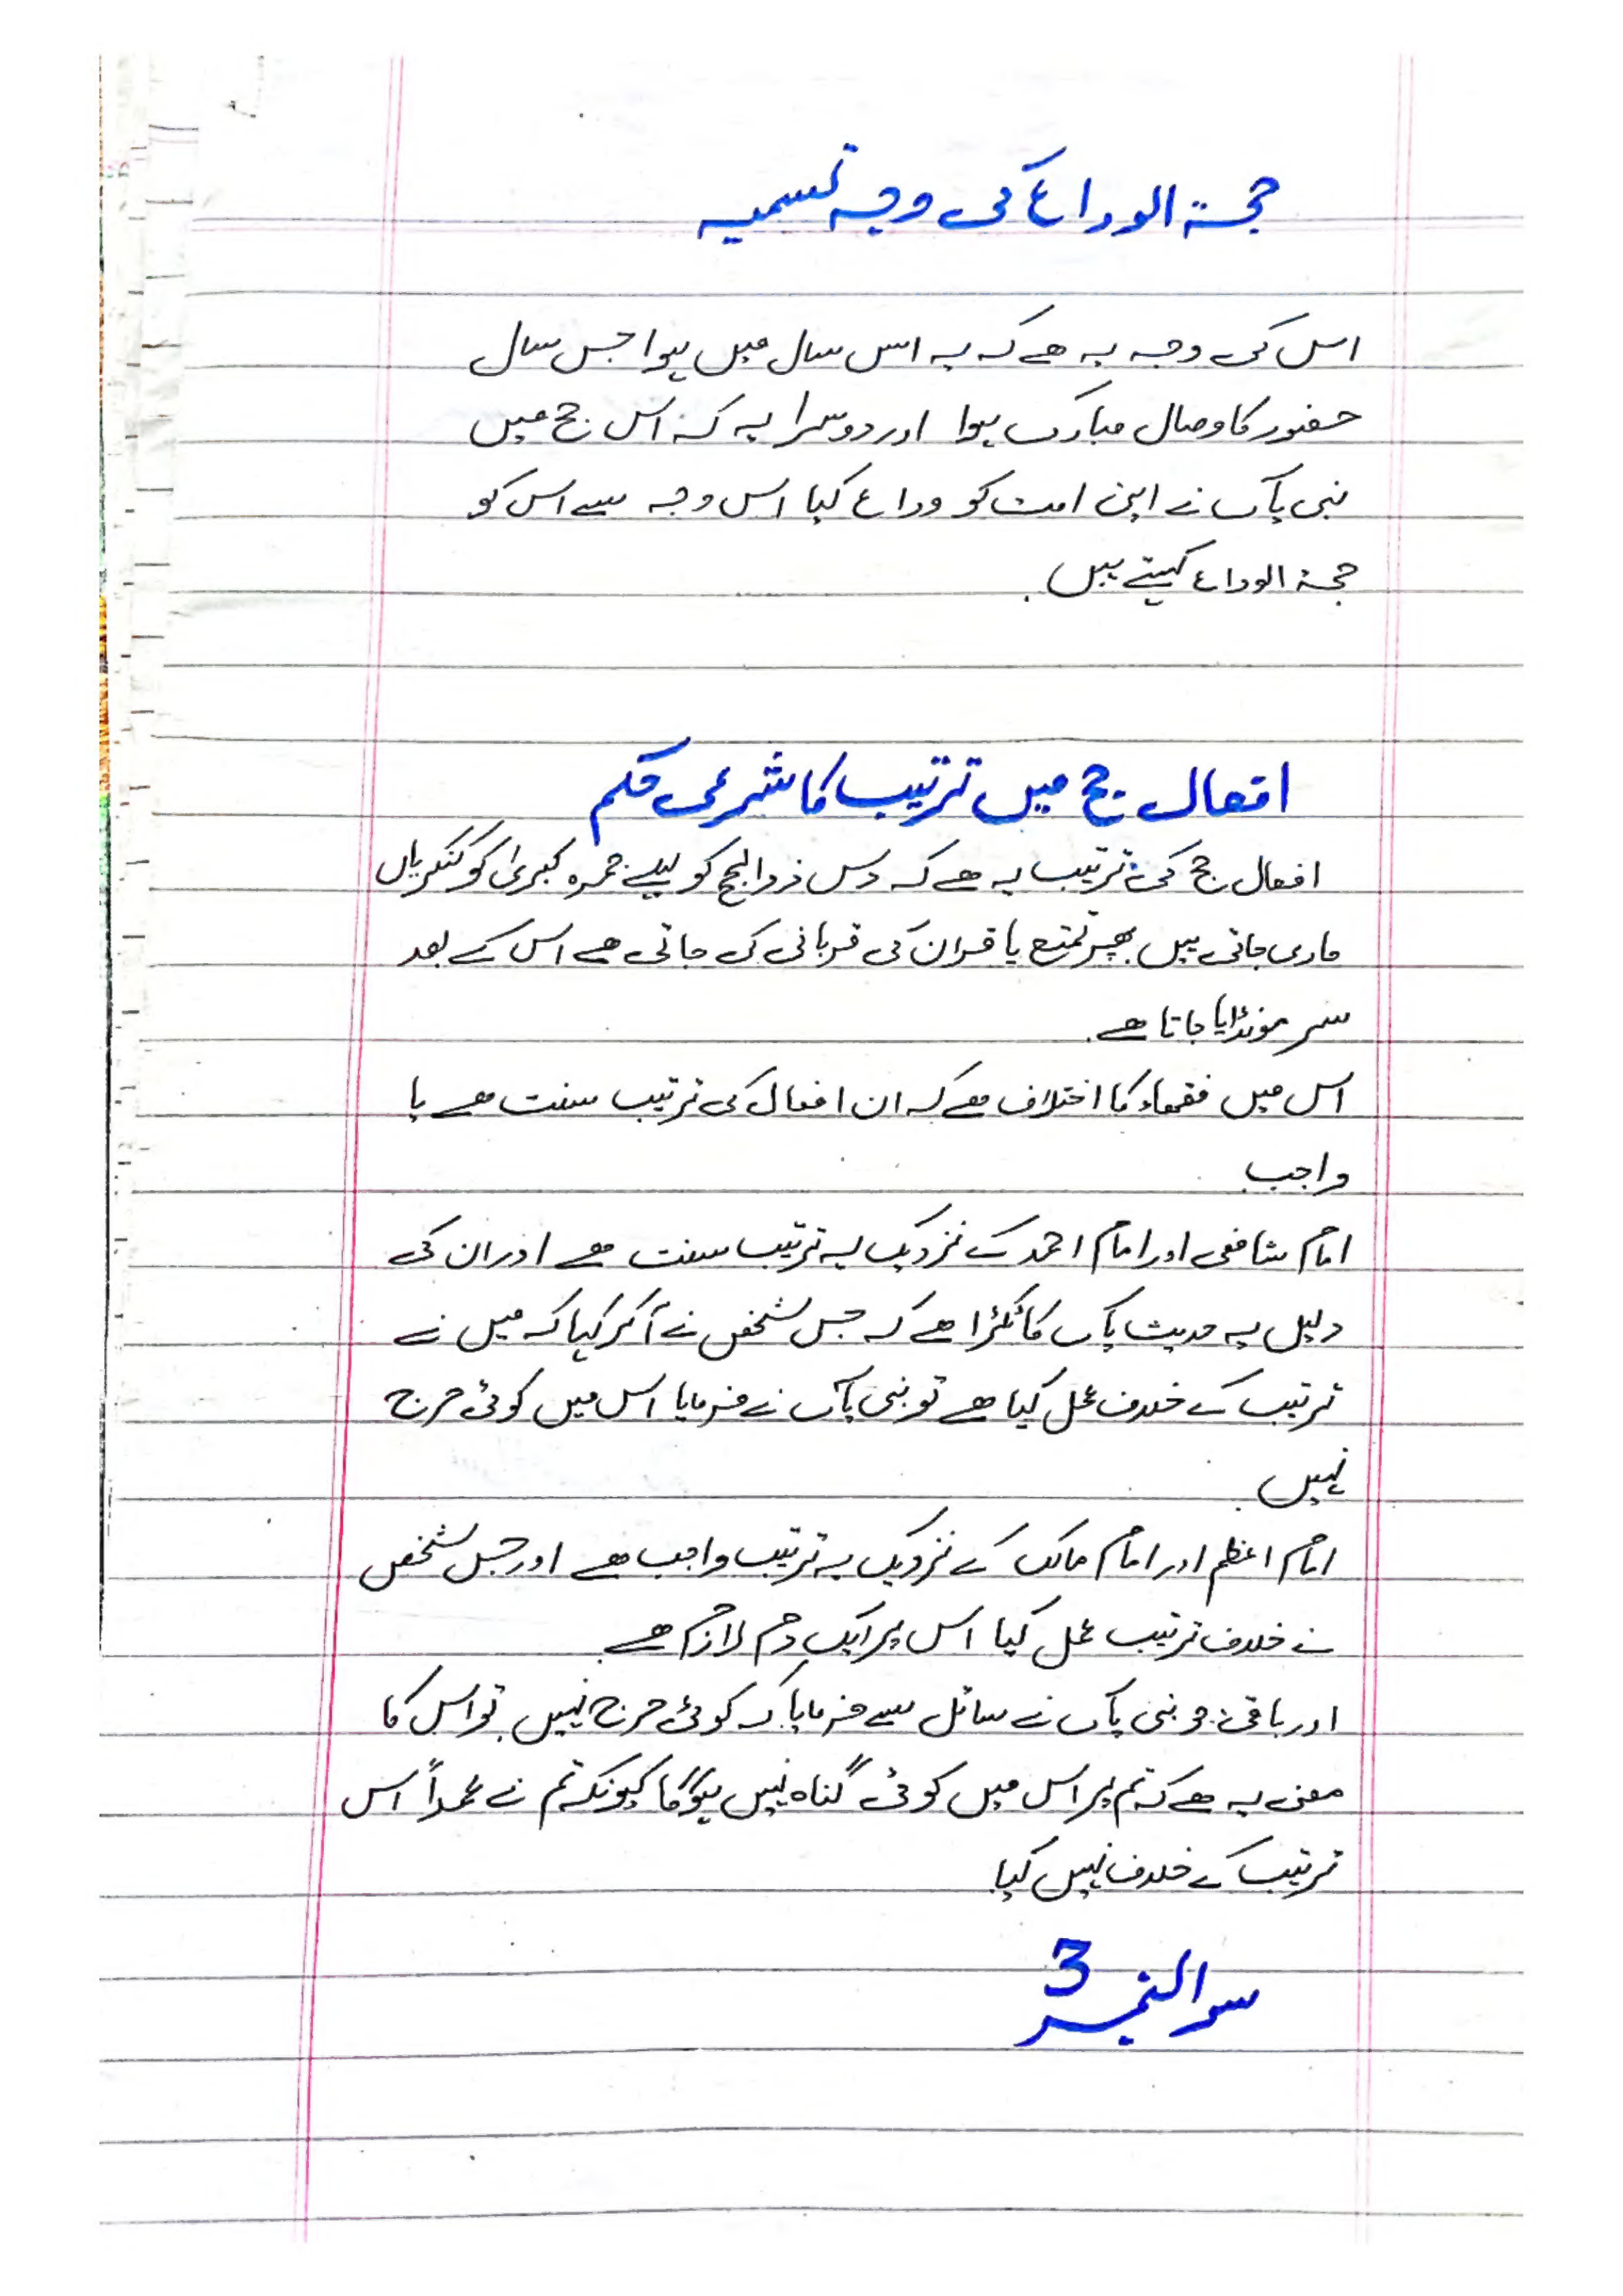 حجۃ الوداع کی وجہ تسمیہ
اس کی وجہ یہ ہے کہ یہ اس سال میں ہوا جس سال
حضور کا وصال مبارک ہوا اور دوسرا یہ کہ اس حج میں
نبی پاک نے اپنی امت کو وداع کیا اس وجہ سے اس کو
حجۃ الوداع کہتے ہیں.
افعال حج میں ترتیب کا شرعی حکم
افعال حج کی ترتیب یہ ہے کہ دس ذوالحج کو پہلے جمرہ کبریٰ کو کنکریاں
ماری جاتی ہیں پھر تمتع یا قران کی قربانی کی جاتی ہے اس کے بعد
سر مونڈایا جاتا ہے.
اس میں فقھاء کا اختلاف ہے کہ ان افعال کی ترتیب سنت ہے یا
واجب
امام شافعی اور امام احمد کے نزدیک یہ ترتیب سنت ہے اور ان کی
دلیل یہ حدیث پاک کا ٹکڑا ہے کہ جس شخص نے آکر کہا کہ میں نے
ترتیب کے خلاف عمل کیا ہے تو نبی پاک نے فرمایا اس میں کوئی حرج
نہیں.
امام اعظم اور امام مالک کے نزدیک یہ ترتیب واجب ہے اور جس شخص
نے خلاف ترتیب عمل کیا اس پر ایک دم لازم ہے.
اور باقی جو نبی پاک نے سائل سے فرمایا کہ کوئی حرج نہیں تو اس کا
معنی یہ ہے کہ تم پر اس میں کوئی گناہ نہیں ہوگا کیونکہ تم نے عمداً اس
ترتیب کے خلاف نہیں کیا.
سوال نمبر 3